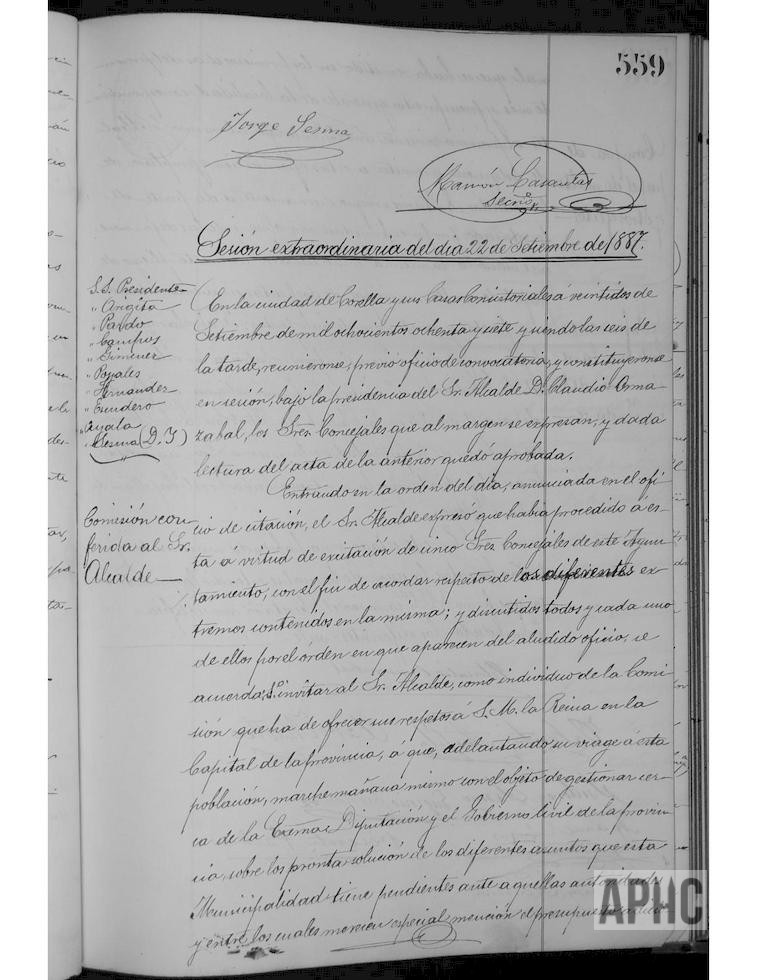 559
Jorge Sesma
Ramón Casautas
Secrio
Sesión extraordinaria del dia 22 de Setiembre de 1887.
S.S. Presidente
" Arigita
" Pardo
" Campos
" Gimenez
" Posales
" Hernandez
" Escudero
" Ayala
" Sesma (D. J)
En la ciudad de Corella y sus Casas Consistoriales á veintidos de
Setiembre de mil ochocientos ochenta y siete y siendo las seis de
la tarde, reunieronse, previo oficio de convocatoria, y constituyeronse
en sesión, bajo la presidencia del Sr. Alcalde D. Claudio Arna
zabal, los Sres. Concejales que al margen se expresan, y dada
lectura del acta de la anterior quedó aprobada.
Comisión con
ferida al Sr.
Alcalde
Entrando en la orden del dia, anunciada en el ofi
cio de citación, el Sr. Alcalde expresó que habia procedido á es-
ta á virtud de excitación de cinco Sres. Concejales de este Ayun
tamiento, con el fin de acordar respecto de los diferentes ex
tremos contenidos en la misma; y discutidos todos y cada uno
de ellos por el orden en que aparecen del aludido oficio, se
acuerda: 1º invitar al Sr. Alcalde, como individuo de la Comi
sión que ha de ofrecer sus respetos á S. M. la Reina en la
Capital de la provincia, á que, adelantando su viage á esta
población, marche mañana mismo con el objeto de gestionar cer-
ca de la Excma. Diputación y el Gobierno Civil de la provin
cia, sobre los pronta solución de los diferentes asuntos que esta
Municipalidad tiene pendientes ante aquellas autoridades
y entre los cuales merecen especial mención el presupuesto adicio
APHC